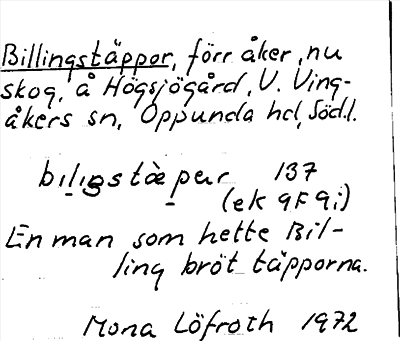 Billingstäppor, förr åker, nu
skog, å Högsjögård, V. Ving-
åkers sn, Oppunda hd, Södl.
bılıgstὰpar 137
(ek 9F 9i)
En man som hette Bil-
ling bröt täpporna.
Mona Löfroth 1972